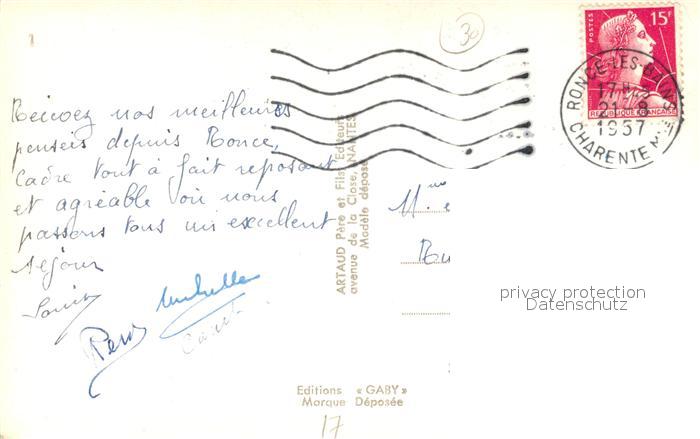 30
POSTES 15F
RÉPUBLIQUE FRANÇAISE
RONCE-LES-BAINS
17H
21-8
1957
CHARENTE Mme
Recevez nos meilleures
pensées depuis Ronce,
Cadre tout à fait reposant
et agréable où nous
passons tous un excellent
séjour
Michelle
ARTAUD Père et Fils, Editeurs
avenue de la Close, NANTES
Modèle déposé
M. me
privacy protection
Datenschutz
Editions « GABY »
Marque Déposée
17